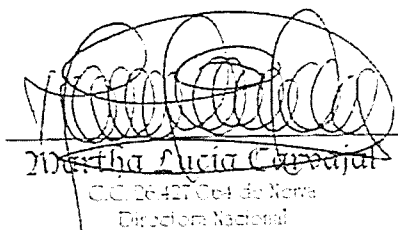 Martha Lucia Carvajal
C.C. 26.427. de Neiva
Directora Nacional